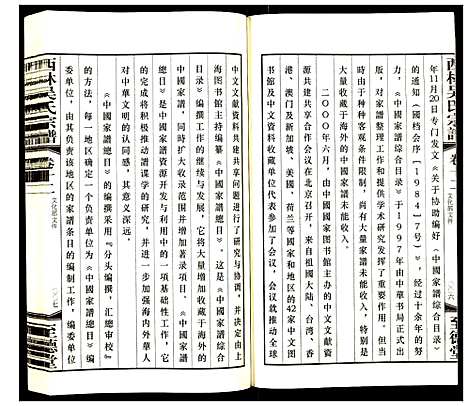 西林吴氏宗譜
卷一
年11月20日专门发文《关于协助编好《中國家譜綜合目录》
的通知（國档会序［1984］7号）》，经过十余年的努
力，《中國家譜綜合目录》于1997年由中華书局正式出
版，对家譜整理工作和提供学术研究发挥了重要作用。但当
时由于种种客观条件限制，有大量家譜未能收入，特别是
大量收藏于海外的中國家譜未能收入。
二○○○年六月，由中國國家图书館主办的中文文献资
源共建共享合作会议在北京召开，來自祖國大陆、台湾、香
港、澳门及新加坡、美國、荷兰等國家和地区的42家中文图
书館及中文资料收藏单位代表参加了会议，会议就推动全球
至德堂
中文文献资料共建共享问题进行了研究与协调，并决定由上
海图书館主持编纂《中國家譜总目》。它是《中國家譜综合
目录》编撰工作的继续与发展，它将大量增加收藏于海外的
中國家譜，同时扩大收录范围并增加著录项目。《中國家譜
总目》是中國家譜资源开发与利用中的一项基础性工作，它
的完成将积极推动譜谍学的研究，并进一步加强海内外華人
对中華文明的认同感，其意义深远。
《中國家譜总目》的编撰采用『分头编撰，汇總审校』
的方法，每一地区确定一个负责单位为《中國家譜总目》编
委单位，由其负责该地区的家譜条目的编制工作，编委单位
西林吴氏宗譜
卷一
文化部文件
至德堂